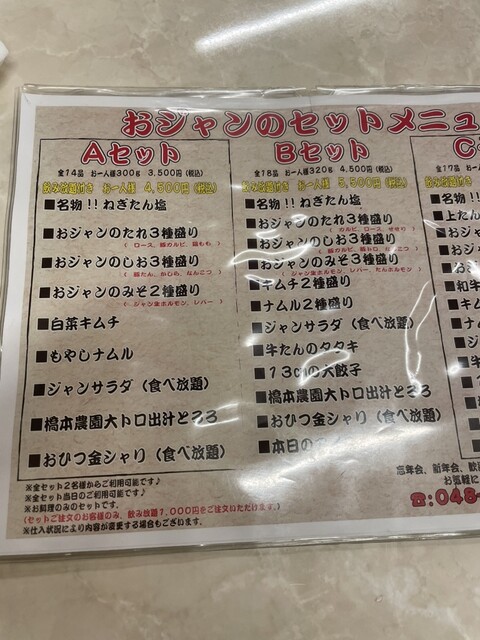 おジャンのセットメニュ
Aセット
全14品 お一人様300g 3,500円(税込)
飲み放題付き お一人様 4,500円(税込)
■名物!!ねぎたん塩
■おジャンのたれ3種盛り
( ロース、豚カルビ、鶏もも )
■おジャンのしお3種盛り
( 豚たん、かしら、なんこつ )
■おジャンのみそ2種盛り
( ジャン生ホルモン、レバー )
■白菜キムチ
■もやしナムル
■ジャンサラダ(食べ放題)
■橋本農園大トロ出汁とろろ
■おひつ金シャリ(食べ放題)
Bセット
全18品 お一人様320g 4,500円(税込)
飲み放題付き お一人様 5,500円(税込)
■名物!!ねぎたん塩
■おジャンのたれ3種盛り
■おジャンのしお3種盛り
■おジャンのみそ3種盛り
( ジャン生ホルモン、レバー、たんホルモン )
■キムチ2種盛り
■ナムル2種盛り
■ジャンサラダ(食べ放題)
■牛たんのタタキ
■13cmの大餃子
■橋本農園大トロ出汁とろろ
■おひつ金シャリ(食べ放題)
■本日の
C
全17品 お一人様
飲み放題付き
■名物
■上たん
■おジャ
■おジャ
■おジャ
■和牛
■キム
■ナム
■ジャ
※全セット2名様からご利用可能です♪
※全セット当日のご利用可能です♪
※お料理のみのセットです。
(セットご注文のお客様のみ、飲み放題1,000円をご注文いただけます。)
※仕入状況により内容が変更する場合もございます。
忘年会、新年会、歓
お気軽に
☎:048-